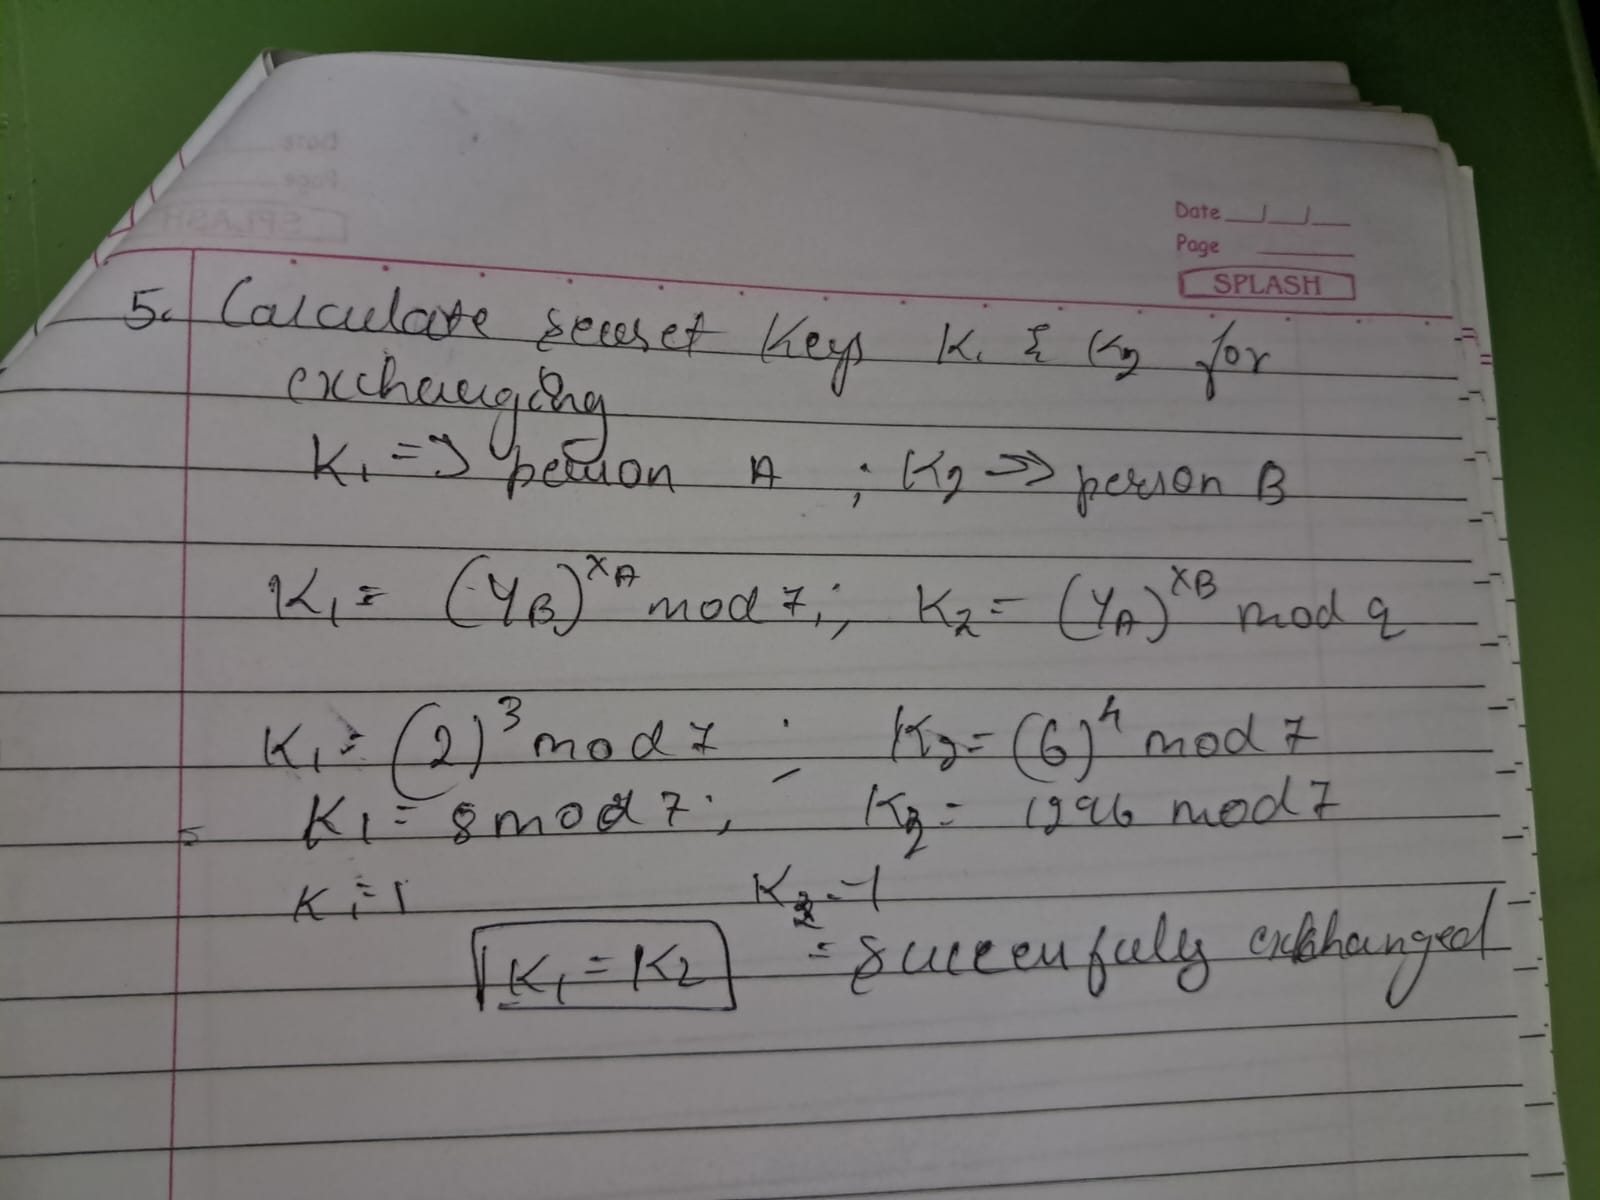 Date
Page
SPLASH
5. Calculate secret Keys K₁ & K₂ for
exchanging
K₁ => person A ; K₂ => person B
K₁ = (YB)^XA mod 7 ; K₂ = (YA)^XB mod q
K₁ = (2)³ mod 7 ; K₂ = (6)⁴ mod 7
K₁ = 8 mod 7 ; K₂ = 1296 mod 7
K₁ = 1 K₂ = 1
K₁ = K₂ = successfully exchanged